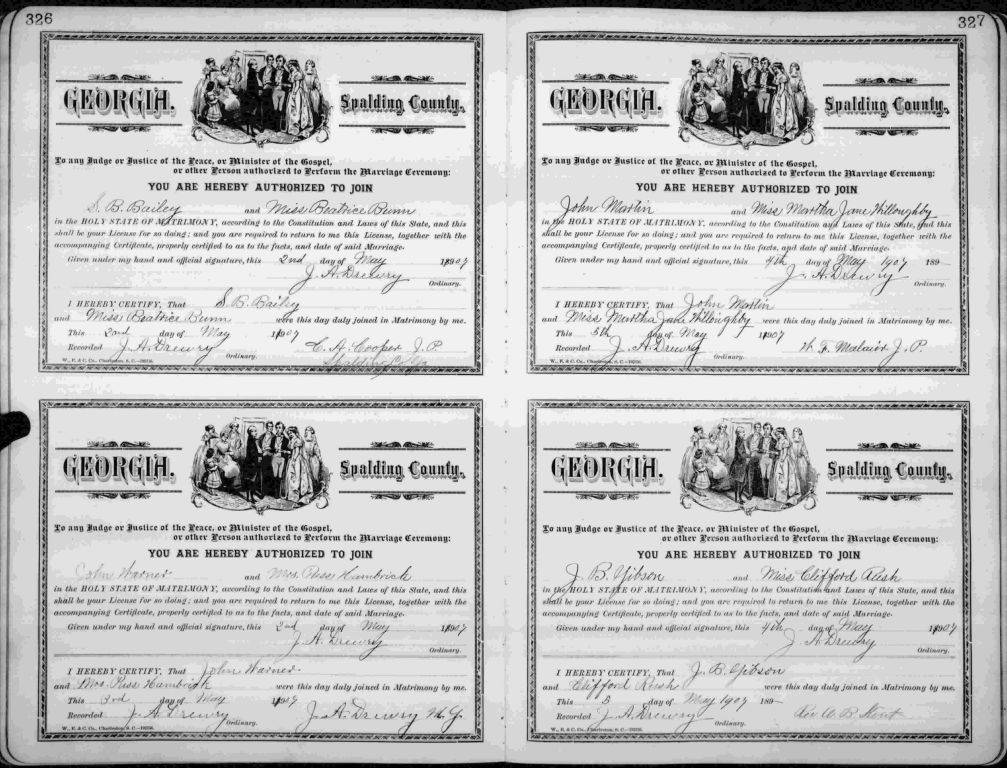 326
GEORGIA. Spalding County.
To any Judge or Justice of the Peace, or Minister of the Gospel,
or other Person authorized to Perform the Marriage Ceremony:
YOU ARE HEREBY AUTHORIZED TO JOIN
S. B. Bailey and Miss Beatrice Bunn
in the HOLY STATE OF MATRIMONY, according to the Constitution and Laws of this State, and this
shall be your License for so doing; and you are required to return to me this License, together with the
accompanying Certificate, properly certified to as to the facts, and date of said Marriage.
Given under my hand and official signature, this 2nd day of May 1907
J. A. Drewry
Ordinary.
I HEREBY CERTIFY, That S. B. Bailey
and Miss Beatrice Bunn were this day duly joined in Matrimony by me.
This 2nd day of May 1907
Recorded J. A. Drewry Ordinary. C. A. Cooper J. P.
W., E. & C. Co., Charleston, S. C.
GEORGIA. Spalding County.
To any Judge or Justice of the Peace, or Minister of the Gospel,
or other Person authorized to Perform the Marriage Ceremony:
YOU ARE HEREBY AUTHORIZED TO JOIN
John Warner and Mrs. Puss Hambrick
in the HOLY STATE OF MATRIMONY, according to the Constitution and Laws of this State, and this
shall be your License for so doing; and you are required to return to me this License, together with the
accompanying Certificate, properly certified to as to the facts, and date of said Marriage.
Given under my hand and official signature, this 2nd day of May 1907
J. A. Drewry
Ordinary.
I HEREBY CERTIFY, That John Warner
and Mrs. Puss Hambrick were this day duly joined in Matrimony by me.
This 3rd day of May 1907
Recorded J. A. Drewry Ordinary. J. A. Drewry
W., E. & C. Co., Charleston, S. C.
327
GEORGIA. Spalding County.
To any Judge or Justice of the Peace, or Minister of the Gospel,
or other Person authorized to Perform the Marriage Ceremony:
YOU ARE HEREBY AUTHORIZED TO JOIN
John Martin and Miss Martha Jane Willoughby
in the HOLY STATE OF MATRIMONY, according to the Constitution and Laws of this State, and this
shall be your License for so doing; and you are required to return to me this License, together with the
accompanying Certificate, properly certified to as to the facts, and date of said Marriage.
Given under my hand and official signature, this 4th day of May 1907 189
J. A. Drewry
Ordinary.
I HEREBY CERTIFY, That John Martin
and Miss Martha Jane Willoughby were this day duly joined in Matrimony by me.
This 5th day of May 1907
Recorded J. A. Drewry Ordinary. J. P.
W., E. & C. Co., Charleston, S. C.
GEORGIA. Spalding County.
To any Judge or Justice of the Peace, or Minister of the Gospel,
or other Person authorized to Perform the Marriage Ceremony:
YOU ARE HEREBY AUTHORIZED TO JOIN
J. B. Gibson and Miss Clifford Rush
in the HOLY STATE OF MATRIMONY, according to the Constitution and Laws of this State, and this
shall be your License for so doing; and you are required to return to me this License, together with the
accompanying Certificate, properly certified to as to the facts, and date of said Marriage.
Given under my hand and official signature, this 4th day of May 1907
J. A. Drewry
Ordinary.
I HEREBY CERTIFY, That J. B. Gibson
and Clifford Rush were this day duly joined in Matrimony by me.
This 5 day of May 1907 189
Recorded J. A. Drewry Ordinary. Rev. W. B.
W., E. & C. Co., Charleston, S. C.